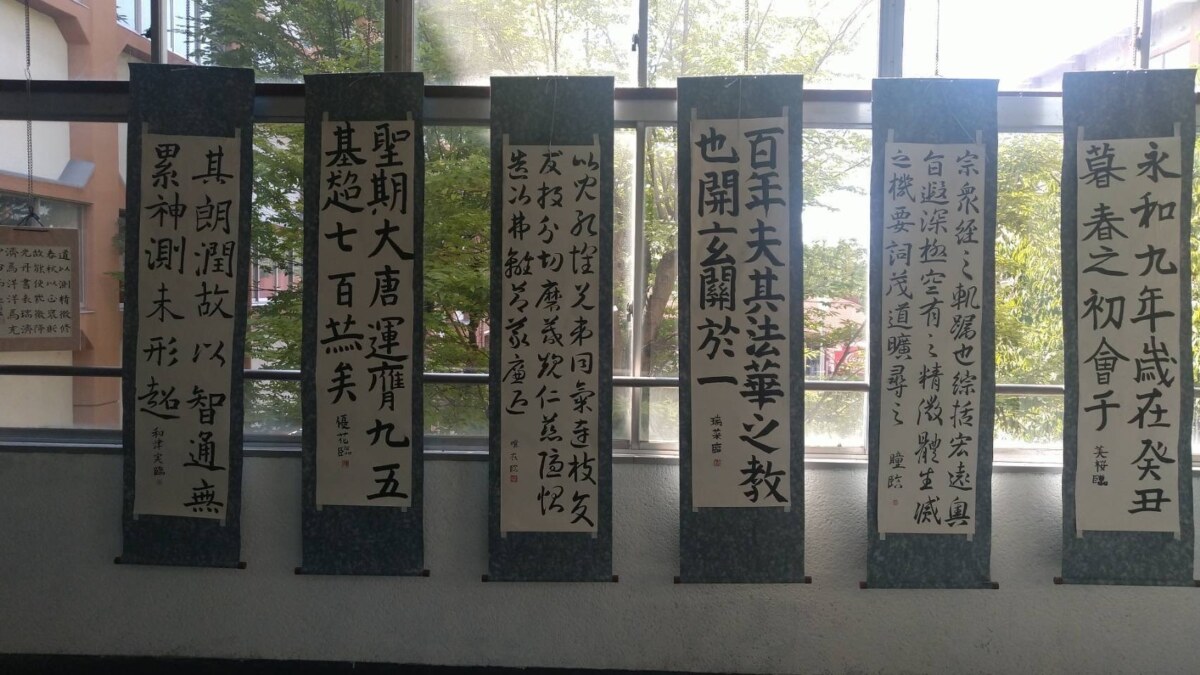 永和九年歳在癸丑
暮春之初會于
宗衆經之軌躅也綜括宏遠奥
旨遐深極空有之精微體生滅
之機要詞茂道曠尋之 瞳臨
百年夫其法華之教
也開玄關於一
比兒孔懐兄弟同氣連枝交
友投分切磨箴規仁慈隱惻
造次弗離節義廉退
聖期大唐運膺九五
基超七百 矣
其朗潤故以智通無
累神測未形超